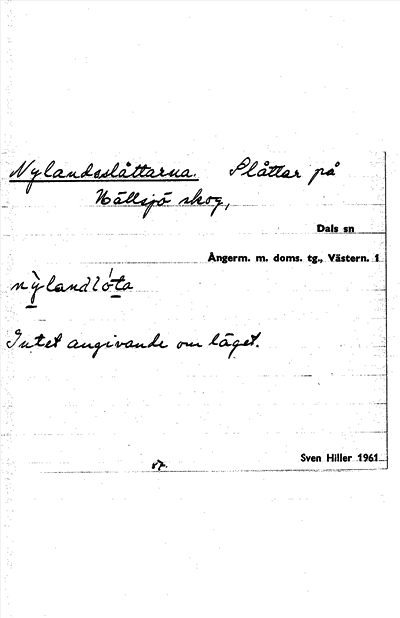 Nylandsslåttarna. Slåttar på
Hällsjö skog,
Dals sn
Ångerm. m. doms. tg., Västern. 1
nỳlandlóta
Intet angivande om läget.
Sven Hiller 1961